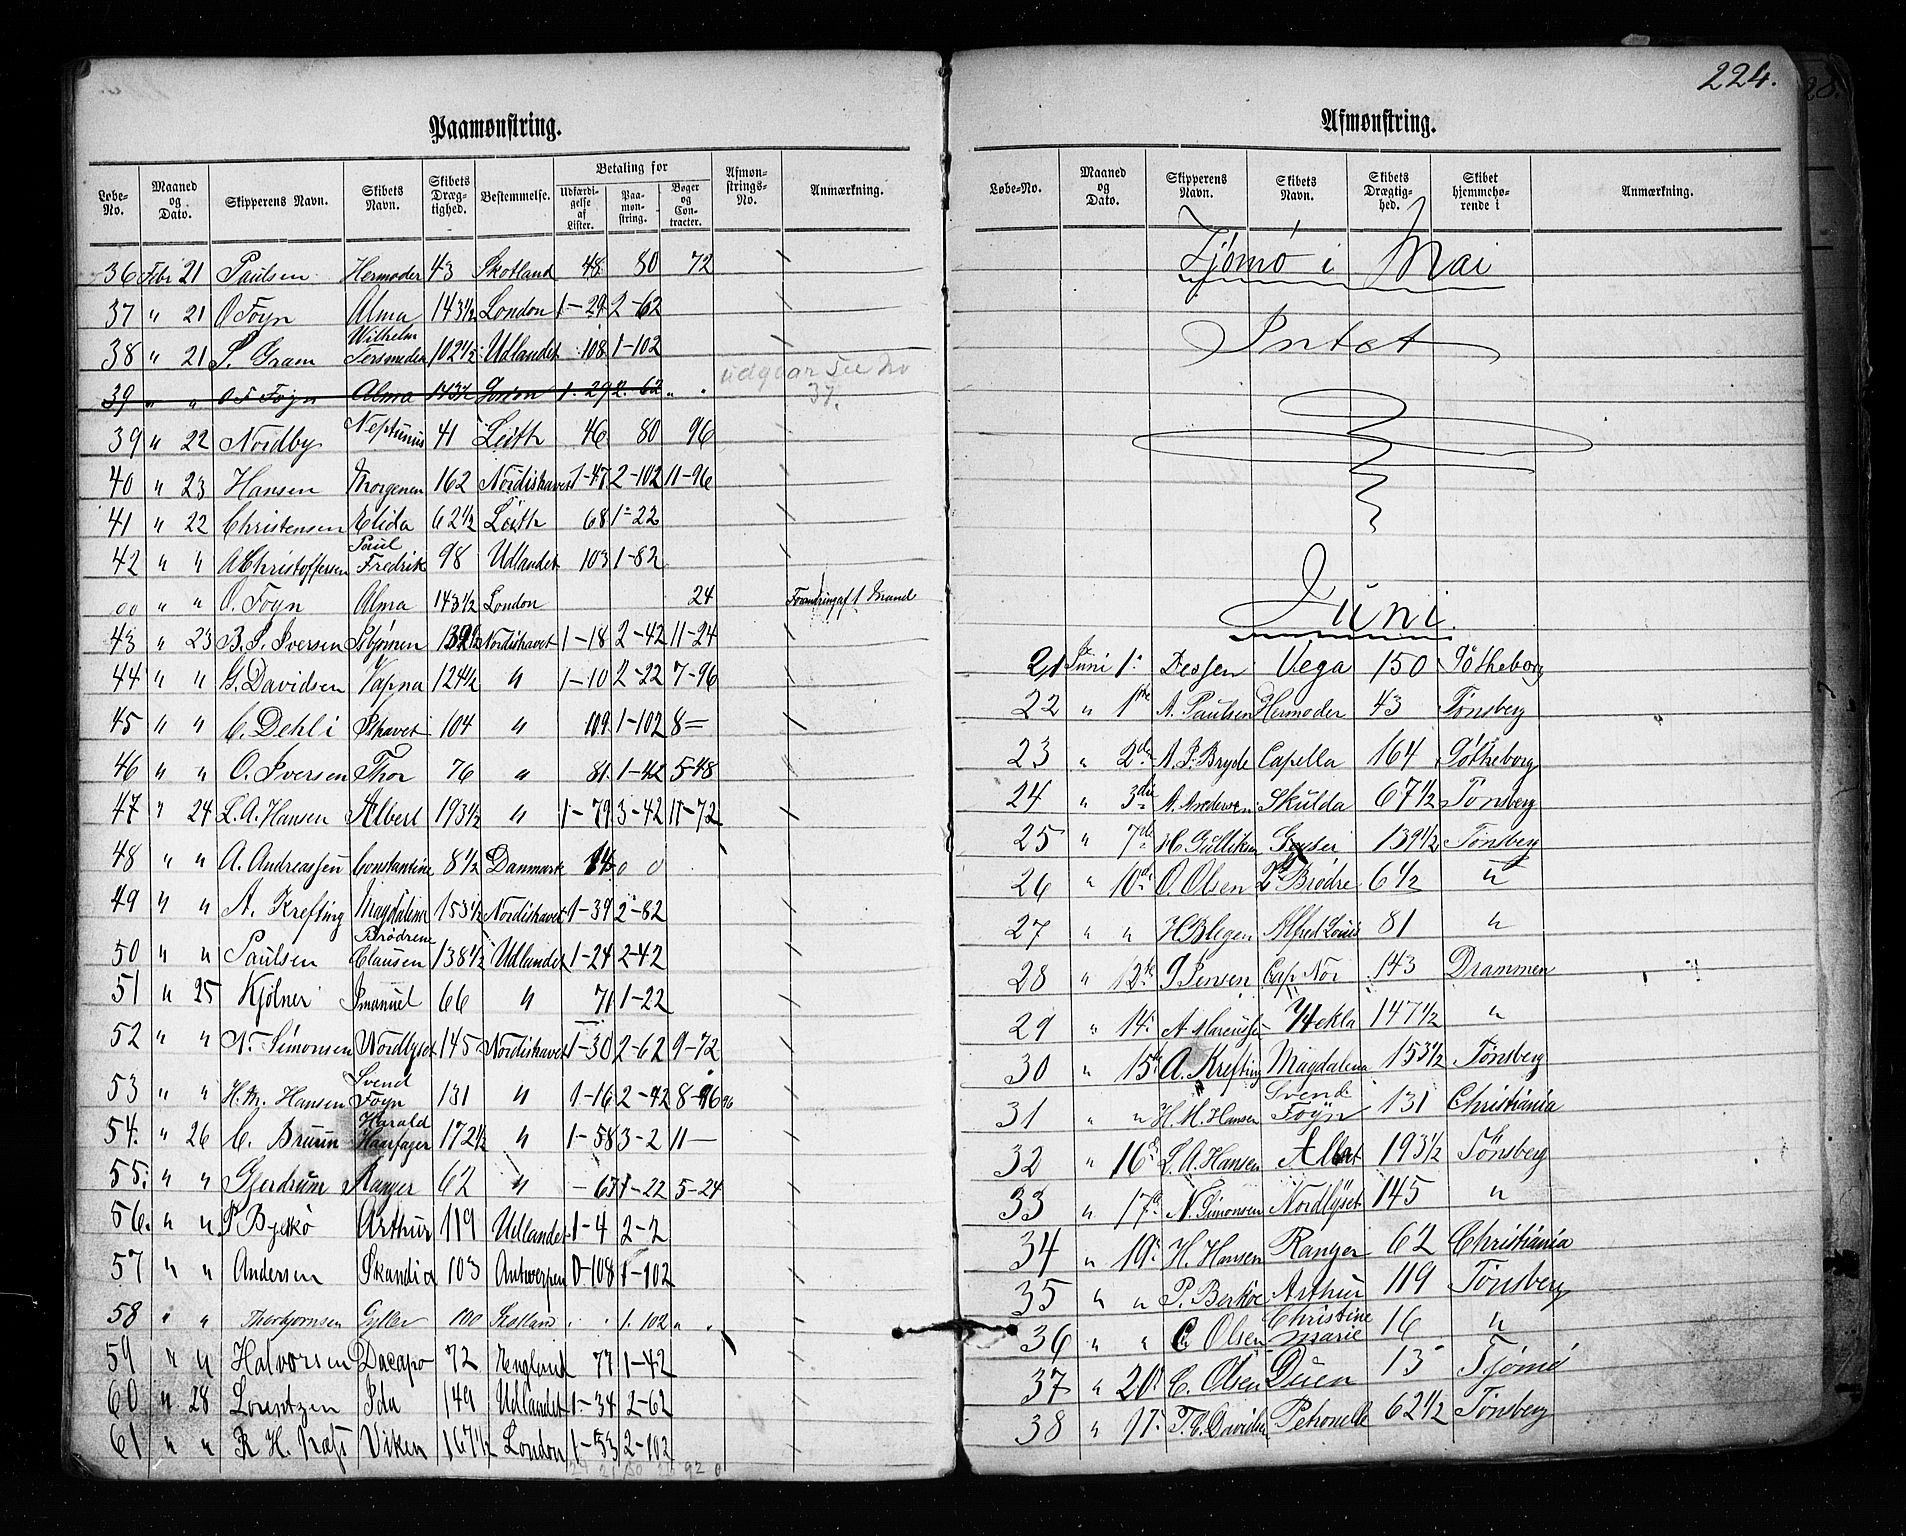 Paamønstring.
Løbe-No. Maaned og Dato. Skipperens Navn. Skibets Navn. Skibets Drægtighed. Bestemmelse. Betaling for Udfærdigelse af Lister. Paamønstring. Bøger og Contracter. Afmønstrings-No. Anmærkning.
36 Febr 21 Paulsen Hermoder 43 Skotland 48 80 72
37 " 21 O Foyn Alma 143 1/2 London 1-29 2-62
38 " 21 S. Gram Wilhelm Tersmeden 102 1/2 Udlandet 108 1-102
39 " " O F Foyn Alma 143 1/2 London 1-29 2-62 " " udgaar See No 37.
39 " 22 Nordby Neptunus 41 Leith 46 80 96
40 " 23 Hansen Morgenen 162 Nordishavet 1-47 2-102 11-96
41 " 22 Christensen Elida 62 1/2 Leith 68 1-22
42 " " A Christoffersen Paul Fredrik 98 Udlandet 103 1-82
00 " " O. Foyn Alma 143 1/2 London 24 Forandring af 1 Mand
43 " 23 B. S. Iversen Isbjørnen Nordishavet 1-18 2-42 11-24
44 " " G. Davidsen Vapna 124 1/2 " 1-10 2-22 7-96
45 " " C. Dehli Ishavet 104 " 109 1-102 8=
46 " " O. Iversen Thor 76 " 81 1-42 5-48
47 " 24 L. A. Hansen Albert 193 1/2 " 1-79 3-42 11-72
48 " " A. Andreassen Constantine 8 1/2 Danmark 14 0 0
49 " " A. Krefting Magdalena 153 1/2 Nordishavet 1-39 2-82
50 " " Paulsen Brødrene Clausen 138 1/2 Udlandet 1-24 2-42
51 " 25 Kjølner Imanuel 66 " 71 1-22
52 " " N. Simonsen Nordlyset 145 Nordishavet 1-30 2-62 9-72
53 " " H. M. Hansen Svend Foyn 131 " 1-16 2-42 8-96
54. " 26 C. Bruun Harald Haarfager 172 1/2 " 1-58 3-2 11-
55. " " Gjerdrum Ranger 62 " -67 1-22 5-24
56. " " P Bjerkø Arthur 119 Udlandet 1-4 2-2
57 " " Andersen Skandia 103 Antwerpen 0-108 1-102
58 " " Thorbjørnsen Gyller 100 Skotland " " 1. 102 " "
59 " " Halvorsen Dacapo 72 England 77 1-42
60 " 28 Lorentzen Ida 149 Udlandet 1-34 2-62
61 " " R H. Viken 167 1/2 London 1-53 2-102
224.
Afmønstring.
Løbe-No. Maaned og Dato. Skipperens Navn. Skibets Navn. Skibets Drægtighed. Skibet hjemmehørende i Anmærkning.
Tjømø i Mai
Intet
Juni.
21 Juni 1. Dessen Vega 150 Gøtheborg
22 " 1ste A. Paulsen Hermoder 43 Tønsberg
23 " 2den A. F. Bryde Capella 164 Gøtheborg
24 " 3die A. Andersen Skulda 67 1/2 Tønsberg
25 " 7de H. Gulliksen Geysir 139 1/2 Tønsberg
26 " 10de O. Olsen Brødre 6 1/2 "
27 " " H Blegen Alfred Louis 81 "
28 " 12te Jensen Cap Nor 143 Drammen
29 " 14. A Hekla 147 1/2 "
30 " 15. A. Krefting Magdalena 153 1/2 Tønsberg
31 " " H. M. Hansen Svend Foyn 131 Christiania
32 " 16 L. A. Hansen Albert 193 1/2 Tønsberg
33 " 17. N. Simonsen Nordlyset 145 "
34 " 19. H. Hansen Ranger 62 Christiania
35 " " P. Berkøe Arthur 119 Tønsberg
36 " " C. Olsen Christine Marie 16 "
37 " 20. C. Olsen Duen 13 Tjømø
38 " T. C. Davidsen Petronelle 62 1/2 Tønsberg